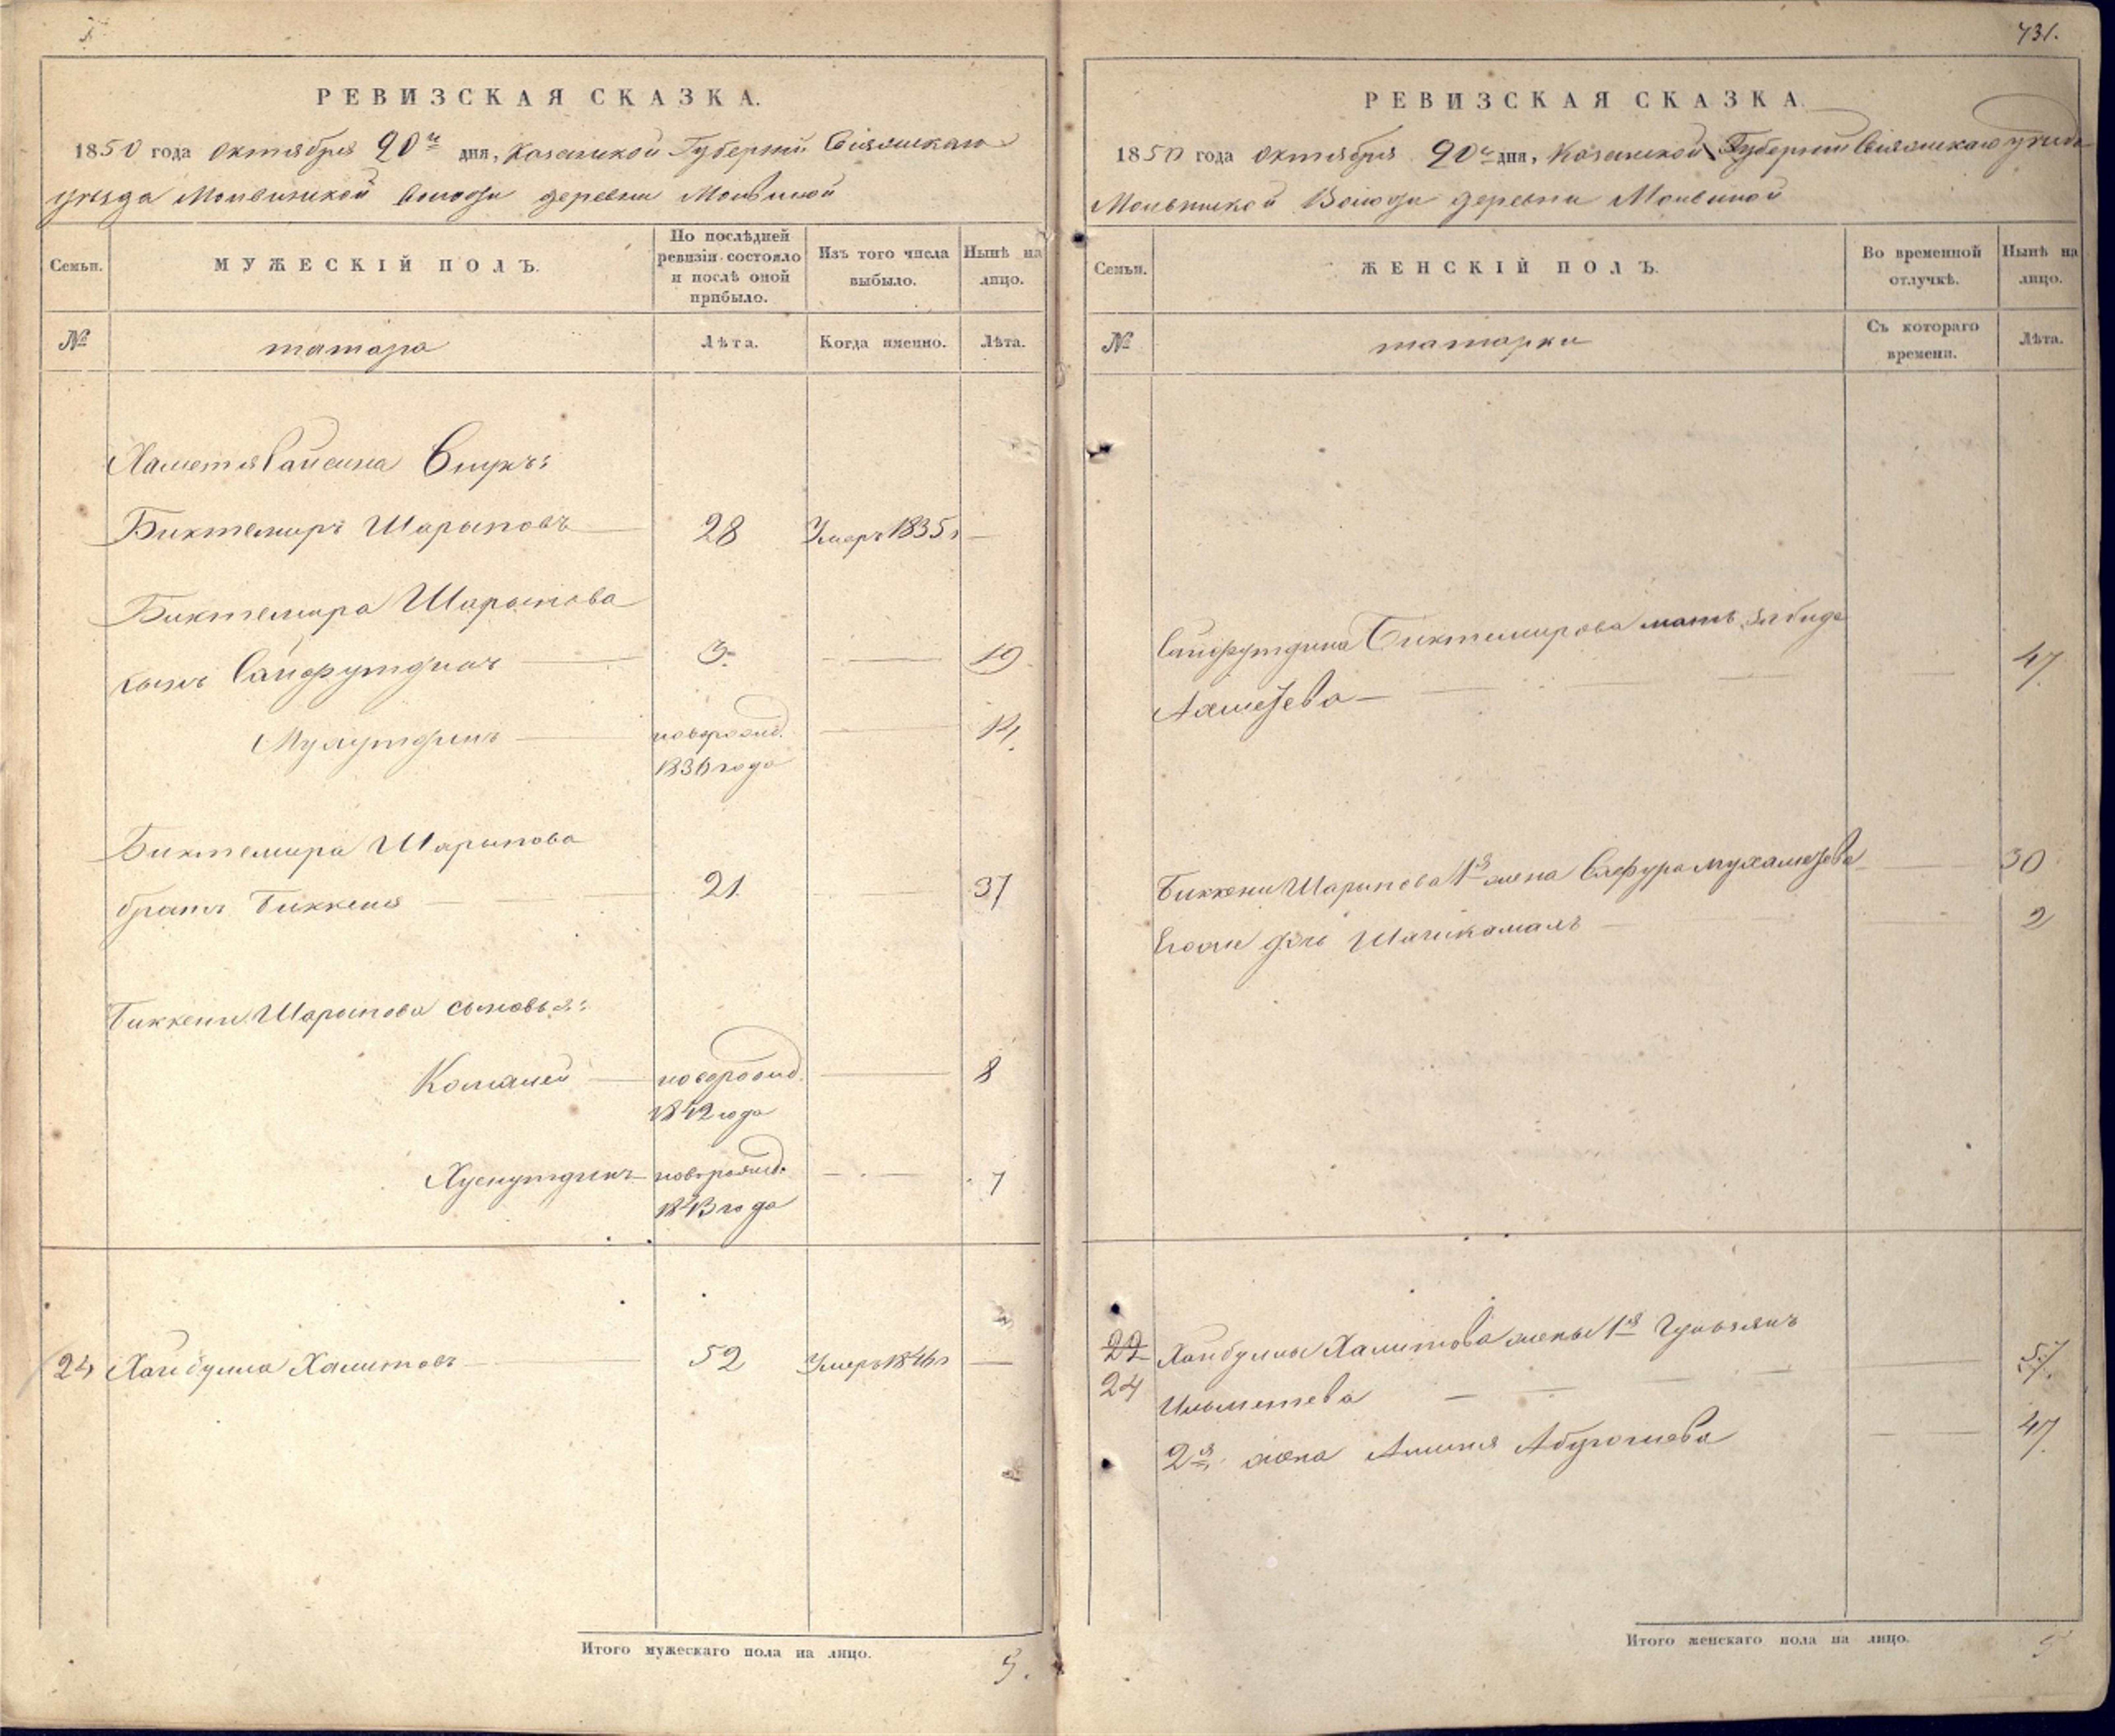 731.
РЕВИЗСКАЯ СКАЗКА.
1850 года Октября 20го дня, Казанской Губернии Свіяжскаго
уезда Молвинской Волости деревни Молвиной
Семьи.
МУЖЕСКІЙ ПОЛЪ.
По послѣдней ревизіи состояло и послѣ оной прибыло.
Изъ того числа выбыло.
Нынѣ на лицо.
№
татара
Лѣта.
Когда именно.
Лѣта.
Хаметя Сапеина Внукъ:
Биктемиръ Шарыповъ 28 Умеръ 1835г —
Биктемира Шарыпова
сынъ Сайфутдинъ 3. — 19
новорожд. — 14
1836 года
Биктемира Шарыпова
братъ Биккеня 21. — 37
Биккени Шарыпова сыновья:
Камалей новорожд. — 8
1842 года
Хуснутдинъ новорожд. — 7
1843 года
24 Хайбулла Халитовъ 52 Умеръ 1846г —
Итого мужескаго пола на лицо.
5.
РЕВИЗСКАЯ СКАЗКА.
1850 года Октября 20го дня, Казанской Губернии Свіяжскаго уезда
Молвинской Волости деревни Молвиной
Семьи.
ЖЕНСКІЙ ПОЛЪ.
Во временной отлучкѣ.
Нынѣ на лицо.
№
татарки
Съ котораго времени.
Лѣта.
Сайфутдина Биктемирова мать Забида
Ахметева — — 47
Биккени Шарыпова 1я жена Сафура Мухаметева — 30
Его дочь Шагикамалъ — 2
22
24
Хайбуллы Халитова жены 1я
Ильметева — — 57.
2я жена 47
Итого женскаго пола на лицо.
5